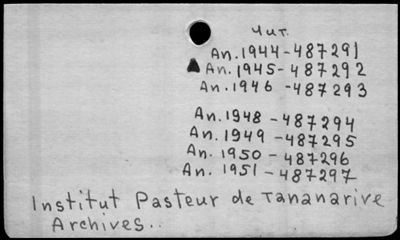 Чит.
An. 1944-487291
An. 1945-487292
An. 1946-487293
An. 1948-487294
An. 1949-487295
An. 1950-487296
An. 1951-487297
Institut Pasteur de Tananarive
Archives..